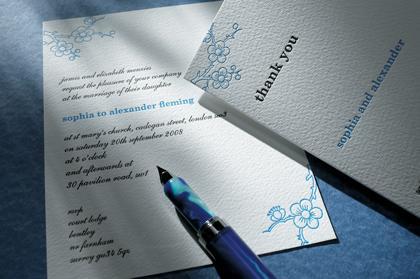 james and elizabeth menzies
request the pleasure of your company
at the marriage of their daughter
sophia to alexander fleming
at st mary's church, cadogan street, london sw3
on saturday 20th september 2008
at 4 o'clock
and afterwards at
30 pavilion road, sw1
rsvp
court lodge
bentley
nr farnham
surrey gu34 5px
thank you
sophia and alexander